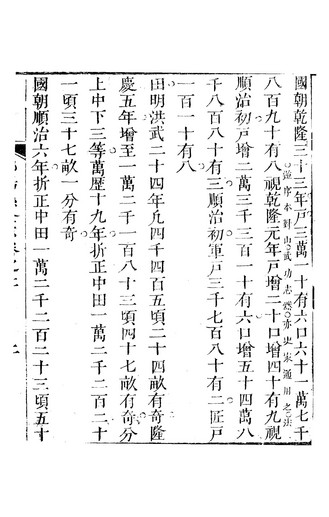 國朝乾隆三十三年戶三萬一十有六口六十一萬七千
八百九十有八視乾隆元年戶增二十口增四十有九視
順治初戶增二萬三千三百一十有六口增五十四萬八
千八百八十有三順治初軍戶三千七百八十有二匠戶
一百一十有八
田明洪武二十四年凡四千四百五頃二十四畝有奇隆
慶五年增至一萬二千一百八十三頃四十七畝有奇分
上中下三等萬歷十九年折正中田一萬二千二百二十
一頃三十七畝一分有奇
國朝順治六年折正中田一萬二千二百二十三頃五十